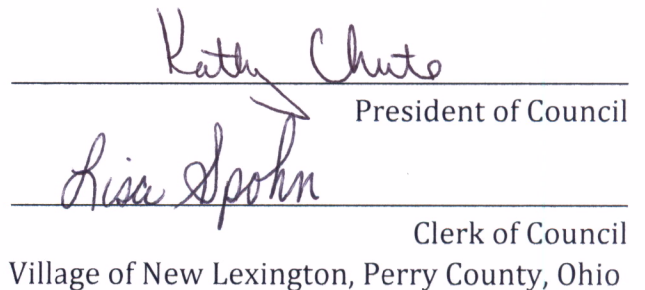 Kathy Chute
President of Council
Lisa Spohn
Clerk of Council
Village of New Lexington, Perry County, Ohio